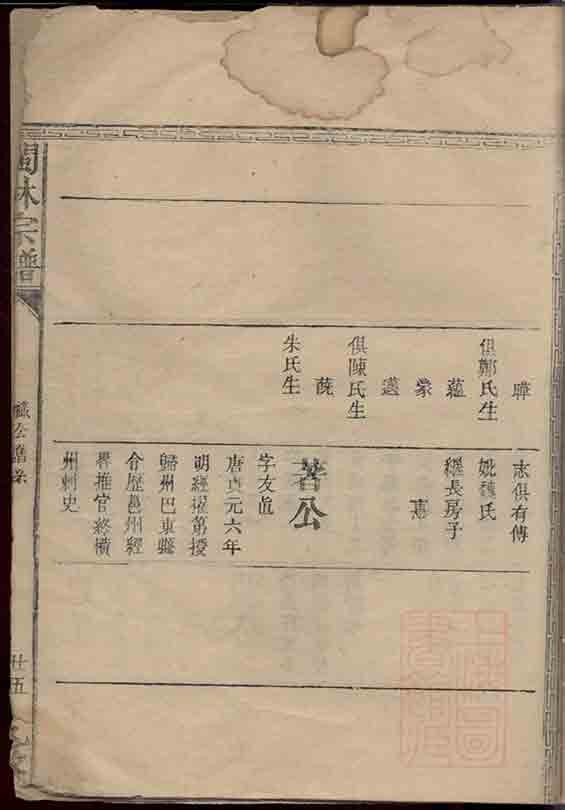 曄
俱鄭氏生
蘊
蒙
邁
俱陳氏生
蕘
朱氏生
志俱有傳
妣魏氏
繼長房子
惪
著公
字友直
唐貞元六年
明經擢第授
歸州巴東縣
令歷邕州經
畧推官終橫
州刺史
林宗譜
廿五